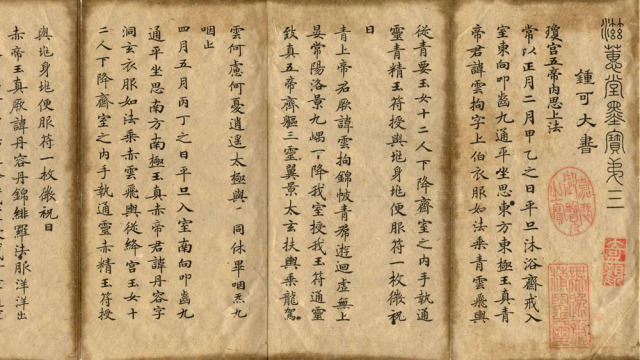 滋蕙堂墨寶弟三
鍾可大書
瓊宮五帝內思上法
常以正月二月甲乙之日平旦沐浴齋戒入
室東向叩齒九通平坐思東方東極玉真青
帝君諱雲拘字上伯衣服如法乘青雲飛輿
從青要玉女十二人下降齋室之內手執通
靈青精玉符授與兆身兆便服符一枚微祝
曰
青上帝君厥諱雲拘錦帔青帬遊迴虛無上
晏常陽洛景九嵎下降我室授我玉符通靈
致真五帝齊軀三靈翼景太玄扶輿乘龍駕
雲何慮何憂逍遙太極與 同休畢咽炁九
咽止
四月五月丙丁之日平旦入室南向叩齒九
通平坐思南方南極玉真赤帝君諱丹容字
洞玄衣服如法乘赤雲飛輿從絳宮玉女十
二人下降齋室之內手執通靈赤精玉符授
與兆身兆便服符一枚微祝曰
赤帝玉真厥諱丹容丹錦緋羅法服洋洋出